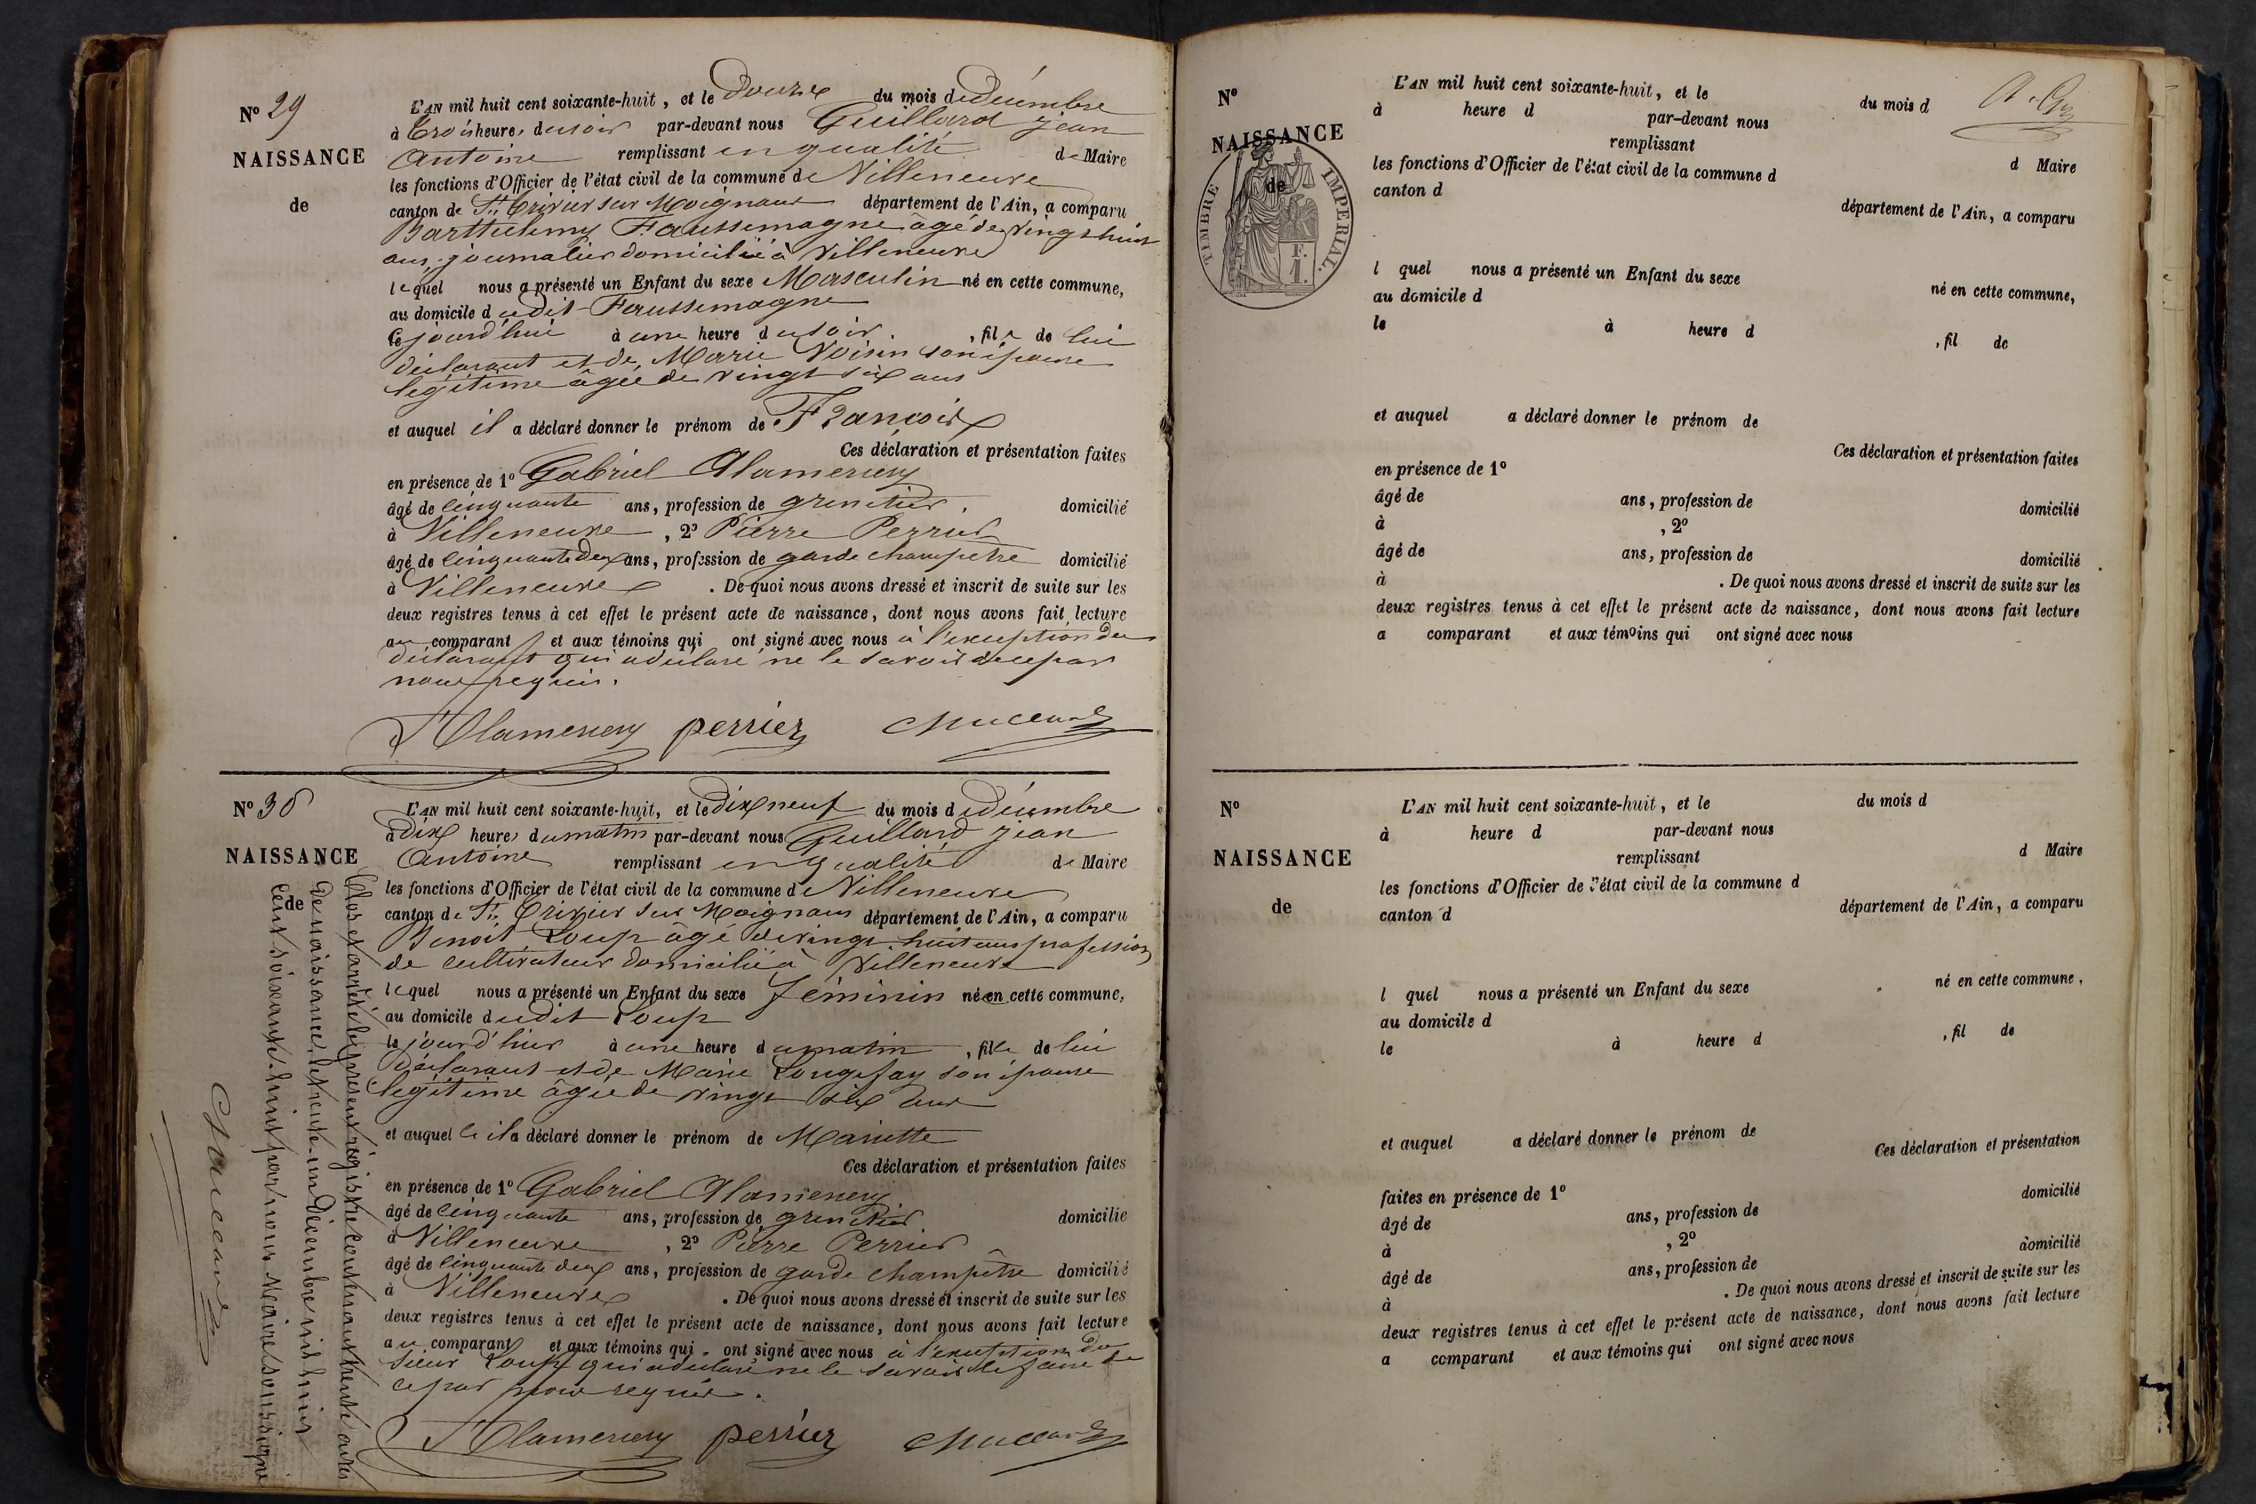 Nº 29
NAISSANCE
de
L'AN mil huit cent soixante-huit, et le Douze du mois de décembre
à trois heures du soir par-devant nous Guillard jean
Antoine remplissant en qualité de Maire
les fonctions d'Officier de l'état civil de la commune de Villeneuve
canton de St. Trivier sur Moignans département de l'Ain, a comparu
Barthelemy Faussemagne âgé de vingt huit
ans, journalier domicilié à Villeneuve
lequel nous a présenté un Enfant du sexe Masculin né en cette commune,
au domicile dudit Faussemagne
le jourd'hui à une heure du soir, fils de lui
déclarant et de Marie Voisin son épouse
légitime âgée de vingt six ans
et auquel il a déclaré donner le prénom de François
Ces déclaration et présentation faites
en présence de 1º Gabriel Alamercery
âgé de cinquante ans, profession de grenetier, domicilié
à Villeneuve, 2º Pierre Perrier
âgé de cinquante deux ans, profession de garde champetre domicilié
à Villeneuve. De quoi nous avons dressé et inscrit de suite sur les
deux registres tenus à cet effet le présent acte de naissance, dont nous avons fait lecture
au comparant et aux témoins qui ont signé avec nous à l'exception du
déclarant qui a déclaré ne le savoir de ce par
nous requis.
Alamercery perrier
Nº 30
NAISSANCE
de
L'AN mil huit cent soixante-huit, et le dix neuf du mois de décembre
à dix heures du matin par-devant nous Guillard jean
Antoine remplissant en qualité de Maire
les fonctions d'Officier de l'état civil de la commune de Villeneuve
canton de St. Trivier sur Moignans département de l'Ain, a comparu
Benoit Loup âgé de vingt huit ans profession
de cultivateur domicilié à Villeneuve
lequel nous a présenté un Enfant du sexe féminin né en cette commune,
au domicile dudit Loup
le jourd'hui à une heure du matin, fille de lui
Déclarant et de Marie Longefay son épouse
légitime âgée de vingt six ans
et auquel le il a déclaré donner le prénom de Mariette
Ces déclaration et présentation faites
en présence de 1º Gabriel Alamercery
âgé de cinquante ans, profession de grenetier domicilié
à Villeneuve, 2º Pierre Perrier
âgé de cinquante deux ans, profession de garde champêtre domicilié
à Villeneuve. De quoi nous avons dressé et inscrit de suite sur les
deux registres tenus à cet effet le présent acte de naissance, dont nous avons fait lecture
au comparant et aux témoins qui ont signé avec nous à l'exception du
sieur Loup qui a déclaré ne le savoir le faire de
ce par nous requis.
Alamercery perrier
Clos et arrêté le present régistre contenant trente actes
de naissances, le trente-un Décembre mil huit
cent soixante-huit par nous Maire soussigné
Nº
NAISSANCE
de
TIMBRE IMPERIAL.
F.
1.
L'AN mil huit cent soixante-huit, et le du mois d
à heure d par-devant nous
remplissant d Maire
les fonctions d'Officier de l'état civil de la commune d
canton d département de l'Ain, a comparu
l quel nous a présenté un Enfant du sexe né en cette commune,
au domicile d
le à heure d , fil de
et auquel a déclaré donner le prénom de
Ces déclaration et présentation faites
en présence de 1º
âgé de ans, profession de domicilié
à , 2º
âgé de ans, profession de domicilié
à . De quoi nous avons dressé et inscrit de suite sur les
deux registres tenus à cet effet le présent acte de naissance, dont nous avons fait lecture
a comparant et aux témoins qui ont signé avec nous
Nº
NAISSANCE
de
L'AN mil huit cent soixante-huit, et le du mois d
à heure d par-devant nous
remplissant d Maire
les fonctions d'Officier de l'état civil de la commune d
canton d département de l'Ain, a comparu
l quel nous a présenté un Enfant du sexe né en cette commune,
au domicile d
le à heure d , fil de
et auquel a déclaré donner le prénom de
Ces déclaration et présentation
faites en présence de 1º
âgé de ans, profession de domicilié
à , 2º
âgé de ans, profession de domicilié
à . De quoi nous avons dressé et inscrit de suite sur les
deux registres tenus à cet effet le présent acte de naissance, dont nous avons fait lecture
a comparant et aux témoins qui ont signé avec nous